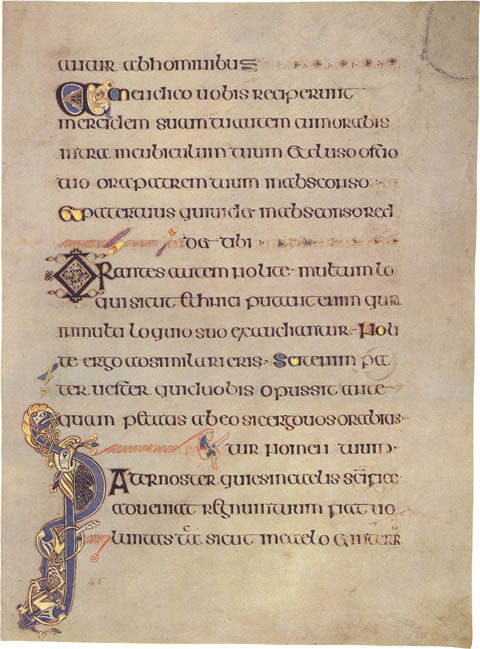 antur ab hominibus
Amen dico uobis reciperunt
mercidem suam tu autem cum orabis
intra in cubiculum tuum et cluso ostio
tuo ora patrem tuum in absconso
et pater tuus qui uidet in absconso red
det tibi
Orantes autem nolite multum lo
qui sicut ethnici putant enim quia
in multa loquio suo exaudiantur Noli
te ergo adsimilari eis Scit enim pa
ter uester quid uobis opus sit ante
quam petatis ab eo sic ergo uos orabitis
tur nomen tuum
Pater noster qui es in caelis scifice
adueniat regnum tuum fiat uo
luntas tua sicut in caelo et in terra